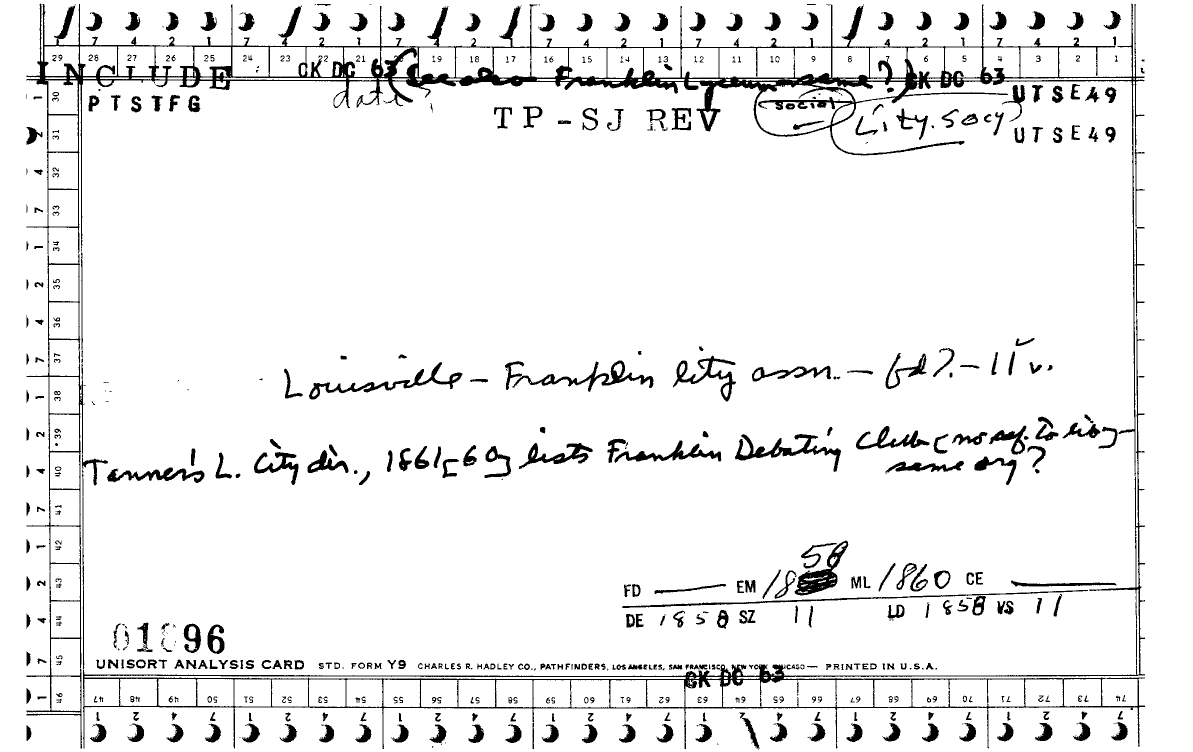 7 4 2 1 7 4 2 1 7 4 2 1 7 4 2 1 7 4 2 1 7 4 2 1
29 28 27 26 25 24 23 22 21 20 19 18 17 16 15 14 13 12 11 10 9 8 7 6 5 4 3 2 1
INCLUDE CK DC 63 (see also Franklin Lyceum same?) CK DC 63 UTSE49
PTSTFG date? TP-SJ REV social Lity. Socy UTSE49
1 30
2 31
4 32
7 33
1 34
2 35
4 36
7 37
1 38
2 39
4 40
7 41
1 42
2 43
4 44
7 45
1 46
Louisville – Franklin lity assn. – fd?. – 11 v.
Tanner's L. City dir., 1861[-60] lists Franklin Debating Club (no ref. to liby –
same org?
58
FD EM 18 ML 1860 CE
DE 1858 SZ 11 LD 1858 VS 11
01896
UNISORT ANALYSIS CARD STD. FORM Y9 CHARLES R. HADLEY CO., PATHFINDERS, LOS ANGELES, SAN FRANCISCO, NEW YORK, CHICAGO — PRINTED IN U.S.A.
CK DC 63
47 48 49 50 51 52 53 54 55 56 57 58 59 60 61 62 63 64 65 66 67 68 69 70 71 72 73 74
1 2 4 7 1 2 4 7 1 2 4 7 1 2 4 7 1 2 4 7 1 2 4 7 1 2 4 7